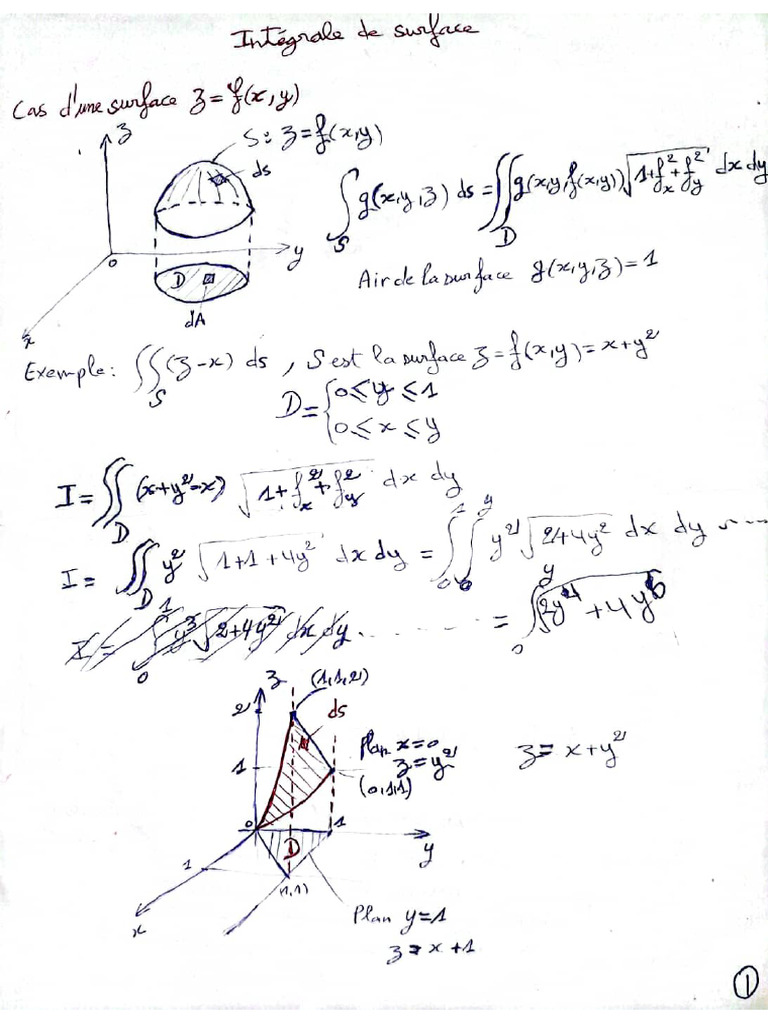 Intégrale de surface
Cas d'une surface z = f(x,y)
z
S: z = f(x,y)
ds
∫_S g(x,y,z) ds = ∬_D g(x,y,f(x,y)) √(1+f_x²+f_y²) dx dy
0
y
D
Air de la surface g(x,y,z) = 1
dA
x
Exemple: ∬_S (z-x) ds, S est la surface z = f(x,y) = x+y²
D = { 0 ≤ y ≤ 1
0 ≤ x ≤ y
I = ∬_D (x+y²-x) √(1+f_x²+f_y²) dx dy
I = ∬_D y² √(1+1+4y²) dx dy = ∫_0^1 ∫_0^y y² √(2+4y²) dx dy ....
I = ∫_0^1 y³ √(2+4y²) dx dy ........ = ∫_0^y √(2y⁴+4y⁶
z
(1,1,2)
2
ds
Plan x=0
z = y²
z = x+y²
1
(0,1,1)
0
1
D
y
1
(1,1)
Plan y=1
z = x+1
x
1